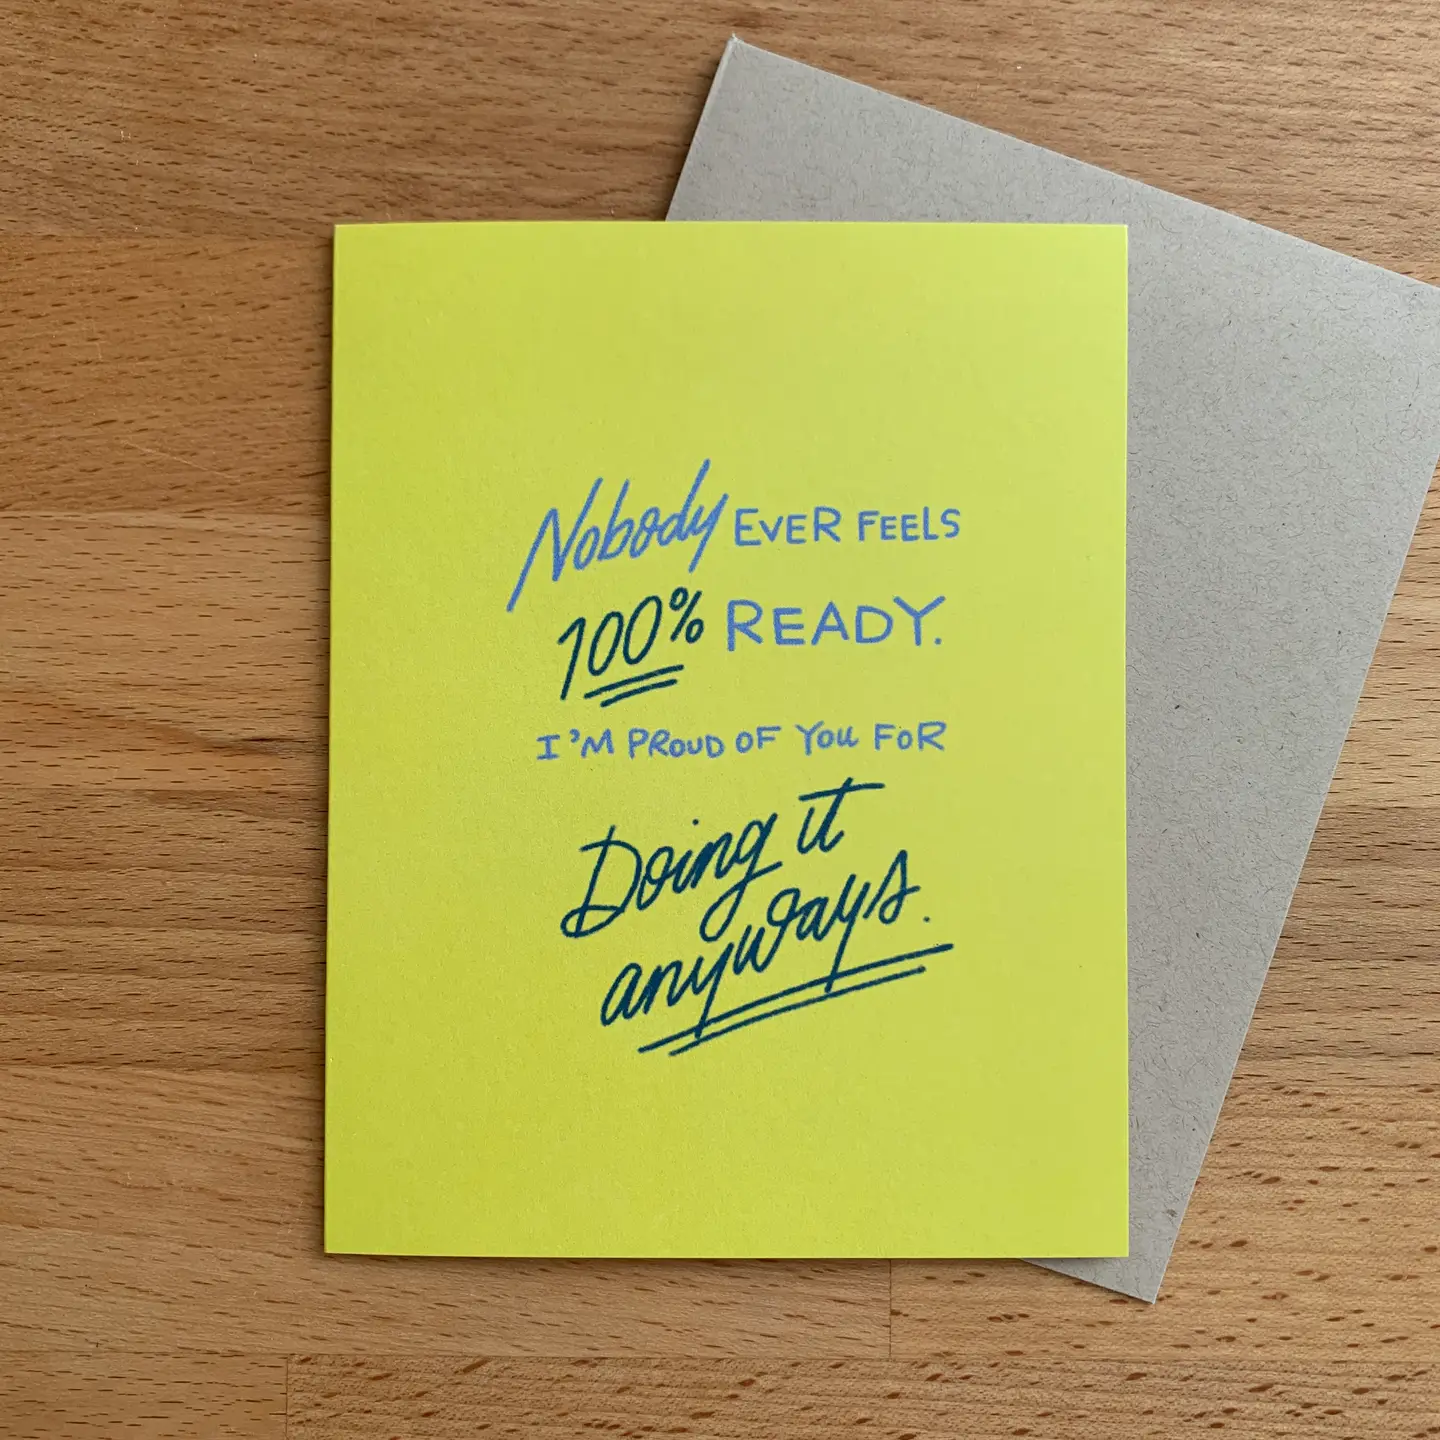 Nobody EVER FEELS
100% READY.
I'M PROUD OF YOU FOR
Doing it
anyways.